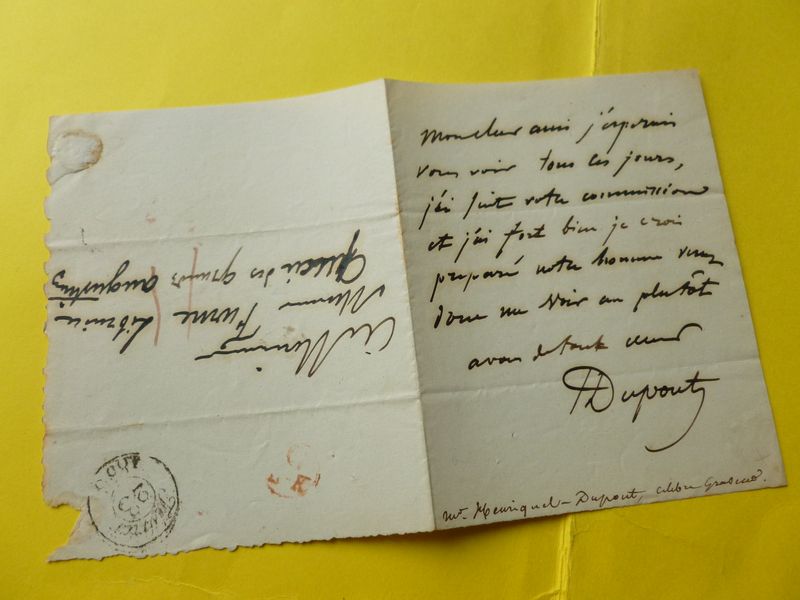 Mon cher ami j'espérais
vous voir tous ces jours,
j'ai fait votre commission
et j'ai fort bien je crois
préparé notre homme venez
donc me voir au plutôt
à vous de tout cœur
Dupont
mr. Henriquel-Dupont, célèbre Graveur.
à Monsieur
Monsieur Furne Libraire
Quai des grands augustins